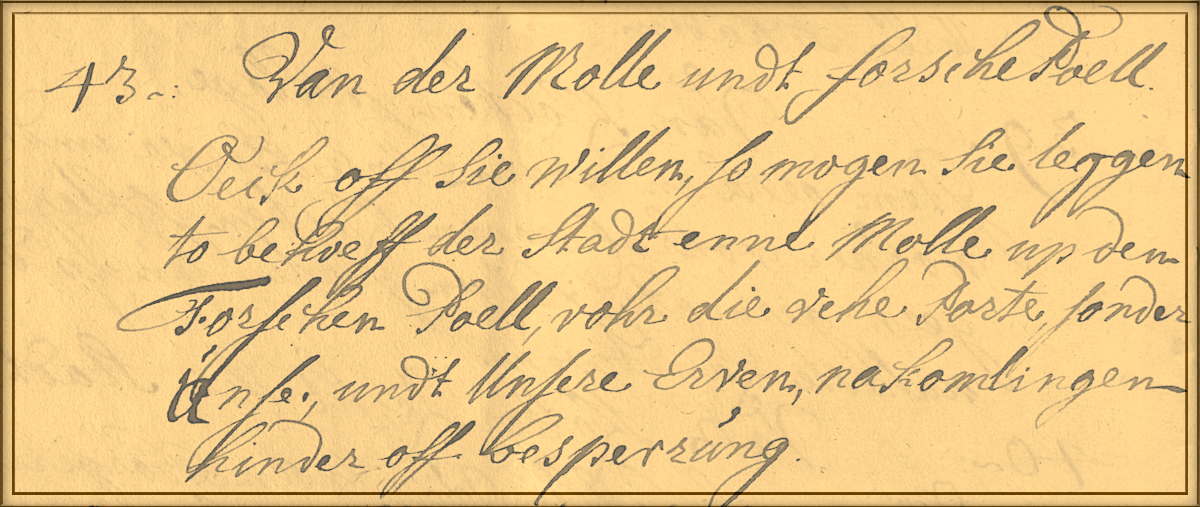 43.: Van der Molle undt forsche Poell.
Oeck off sie willen, so mogen sie leggen
to behoeff der Stadt enne Molle up den
Forschen Poell, vohr die vehe Porte, sonder
Ünse, undt Unsere Erven, nakomlingen
hinder off besperrúng.